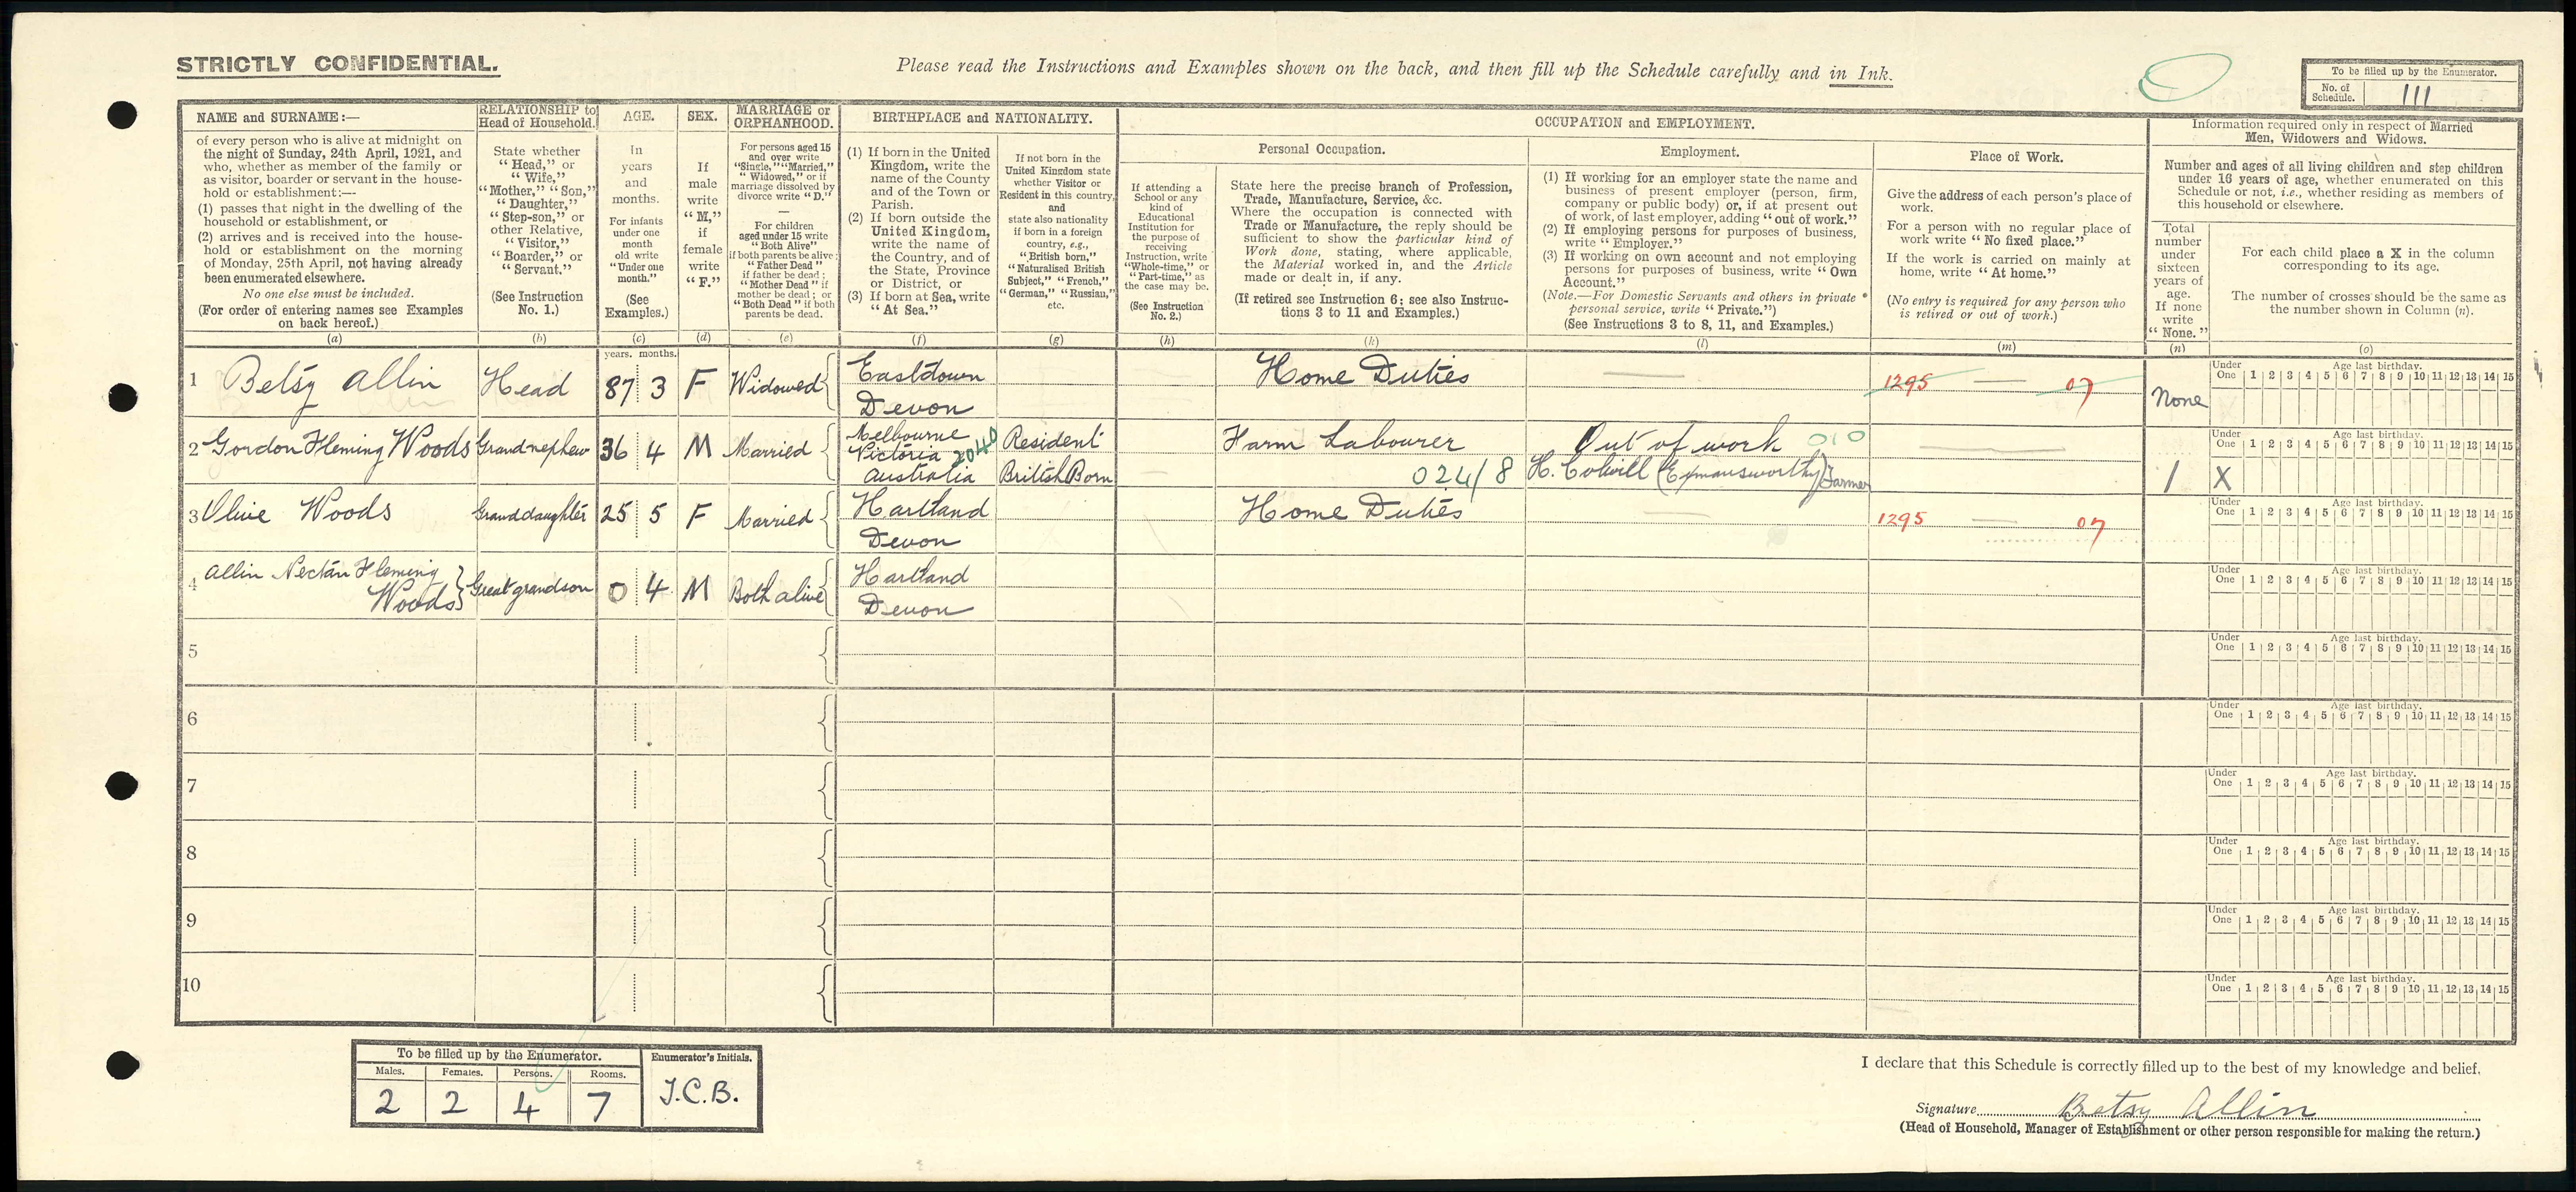 STRICTLY CONFIDENTIAL.
Please read the Instructions and Examples shown on the back, and then fill up the Schedule carefully and in Ink.
To be filled up by the Enumerator.
No. of Schedule. 111
NAME and SURNAME:—
of every person who is alive at midnight on
the night of Sunday, 24th April, 1921, and
who, whether as member of the family or
as visitor, boarder or servant in the house-
hold or establishment:—
(1) passes that night in the dwelling of the
household or establishment, or
(2) arrives and is received into the house-
hold or establishment on the morning
of Monday, 25th April, not having already
been enumerated elsewhere.
No one else must be included.
(For order of entering names see Examples
on back hereof.)
(a)
RELATIONSHIP to
Head of Household.
State whether
"Head," or
"Wife,"
"Mother," "Son,"
"Daughter,"
"Step-son," or
other Relative,
"Visitor,"
"Boarder," or
"Servant."
(See Instruction
No. 1.)
(b)
AGE.
In
years
and
months.
For infants
under one
month
old write
"Under one
month."
(See
Examples.)
(c)
years. months.
SEX.
If
male
write
"M,"
if
female
write
"F."
(d)
MARRIAGE or
ORPHANHOOD.
For persons aged 15
and over write
"Single," "Married,"
"Widowed," or if
marriage dissolved by
divorce write "D."
—
For children
aged under 15 write
"Both Alive"
if both parents be alive;
"Father Dead"
if father be dead;
"Mother Dead" if
mother be dead; or
"Both Dead" if both
parents be dead.
(e)
BIRTHPLACE and NATIONALITY.
(1) If born in the United
Kingdom, write the
name of the County
and of the Town or
Parish.
(2) If born outside the
United Kingdom,
write the name of
the Country, and of
the State, Province
or District, or
(3) If born at Sea, write
"At Sea."
(f)
If not born in the
United Kingdom state
whether Visitor or
Resident in this country,
and
state also nationality
if born in a foreign
country, e.g.,
"British born,"
"Naturalised British
Subject," "French,"
"German," "Russian,"
etc.
(g)
OCCUPATION and EMPLOYMENT.
Personal Occupation.
If attending a
School or any
kind of
Educational
Institution for
the purpose of
receiving
Instruction, write
"Whole-time," or
"Part-time," as
the case may be.
(See Instruction
No. 2.)
(h)
State here the precise branch of Profession,
Trade, Manufacture, Service, &c.
Where the occupation is connected with
Trade or Manufacture, the reply should be
sufficient to show the particular kind of
Work done, stating, where applicable,
the Material worked in, and the Article
made or dealt in, if any.
(If retired see Instruction 6; see also Instruc-
tions 3 to 11 and Examples.)
(k)
Employment.
(1) If working for an employer state the name and
business of present employer (person, firm,
company or public body) or, if at present out
of work, of last employer, adding "out of work."
(2) If employing persons for purposes of business,
write "Employer."
(3) If working on own account and not employing
persons for purposes of business, write "Own
Account."
(Note.—For Domestic Servants and others in private
personal service, write "Private.")
(See Instructions 3 to 8, 11, and Examples.)
(l)
Place of Work.
Give the address of each person's place of
work.
For a person with no regular place of
work write "No fixed place."
If the work is carried on mainly at
home, write "At home."
(No entry is required for any person who
is retired or out of work.)
(m)
Information required only in respect of Married
Men, Widowers and Widows.
Number and ages of all living children and step children
under 16 years of age, whether enumerated on this
Schedule or not, i.e., whether residing as members of
this household or elsewhere.
Total
number
under
sixteen
years of
age.
If none
write
"None."
(n)
For each child place a X in the column
corresponding to its age.
The number of crosses should be the same as
the number shown in Column (n).
(o)
1 Betsy Allin Head 87 3 F Widowed Eastdown Devon Home Duties — 1295 — 07 None
Under One Age last birthday. 1 2 3 4 5 6 7 8 9 10 11 12 13 14 15
2 Gordon Fleming Woods Grandnephew 36 4 M Married Melbourne Victoria Australia 2040 Resident British Born Farm Labourer 024/8 Out of work 010 H. Colwill (Exmansworthy) Farmer — 1 X
Under One Age last birthday. 1 2 3 4 5 6 7 8 9 10 11 12 13 14 15
3 Olive Woods Granddaughter 25 5 F Married Hartland Devon Home Duties — 1295 — 07
Under One Age last birthday. 1 2 3 4 5 6 7 8 9 10 11 12 13 14 15
4 Allin Nectan Fleming Woods Great grandson 0 4 M Both alive Hartland Devon
Under One Age last birthday. 1 2 3 4 5 6 7 8 9 10 11 12 13 14 15
5
Under One Age last birthday. 1 2 3 4 5 6 7 8 9 10 11 12 13 14 15
6
Under One Age last birthday. 1 2 3 4 5 6 7 8 9 10 11 12 13 14 15
7
Under One Age last birthday. 1 2 3 4 5 6 7 8 9 10 11 12 13 14 15
8
Under One Age last birthday. 1 2 3 4 5 6 7 8 9 10 11 12 13 14 15
9
Under One Age last birthday. 1 2 3 4 5 6 7 8 9 10 11 12 13 14 15
10
Under One Age last birthday. 1 2 3 4 5 6 7 8 9 10 11 12 13 14 15
To be filled up by the Enumerator.
Males. Females. Persons. Rooms.
2 2 4 7
Enumerator's Initials.
J.C.B.
I declare that this Schedule is correctly filled up to the best of my knowledge and belief.
Signature Betsy Allin
(Head of Household, Manager of Establishment or other person responsible for making the return.)